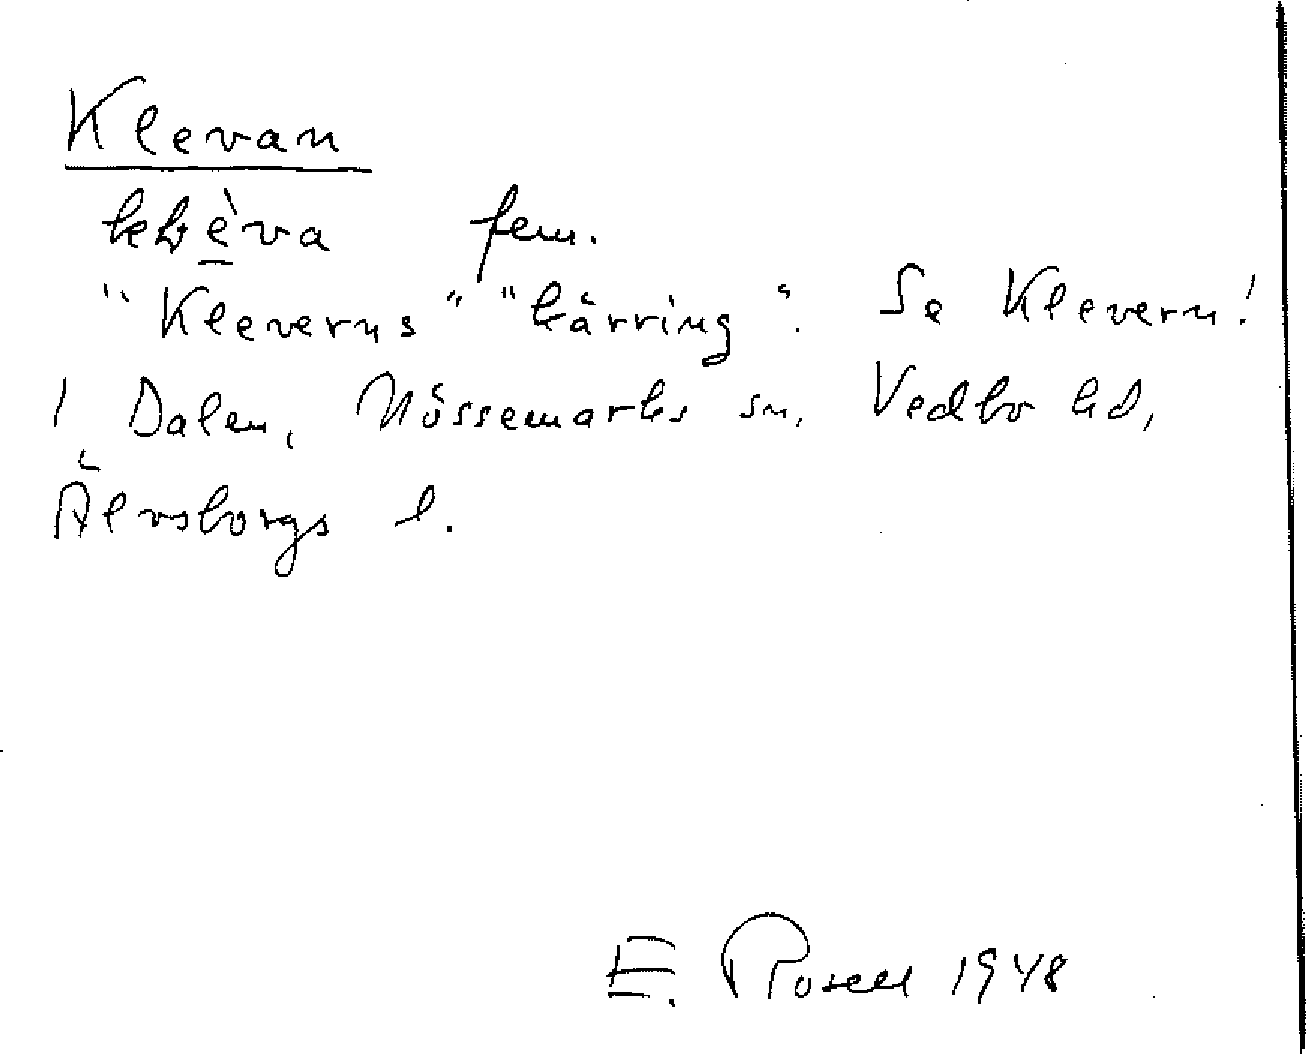 Klevan
fem.
"Kleverns" "kärring". Se Klevern!
I Dalen, Nössemarks sn, Vedbo hd,
Älvsborgs l.
E. Rosell 1948